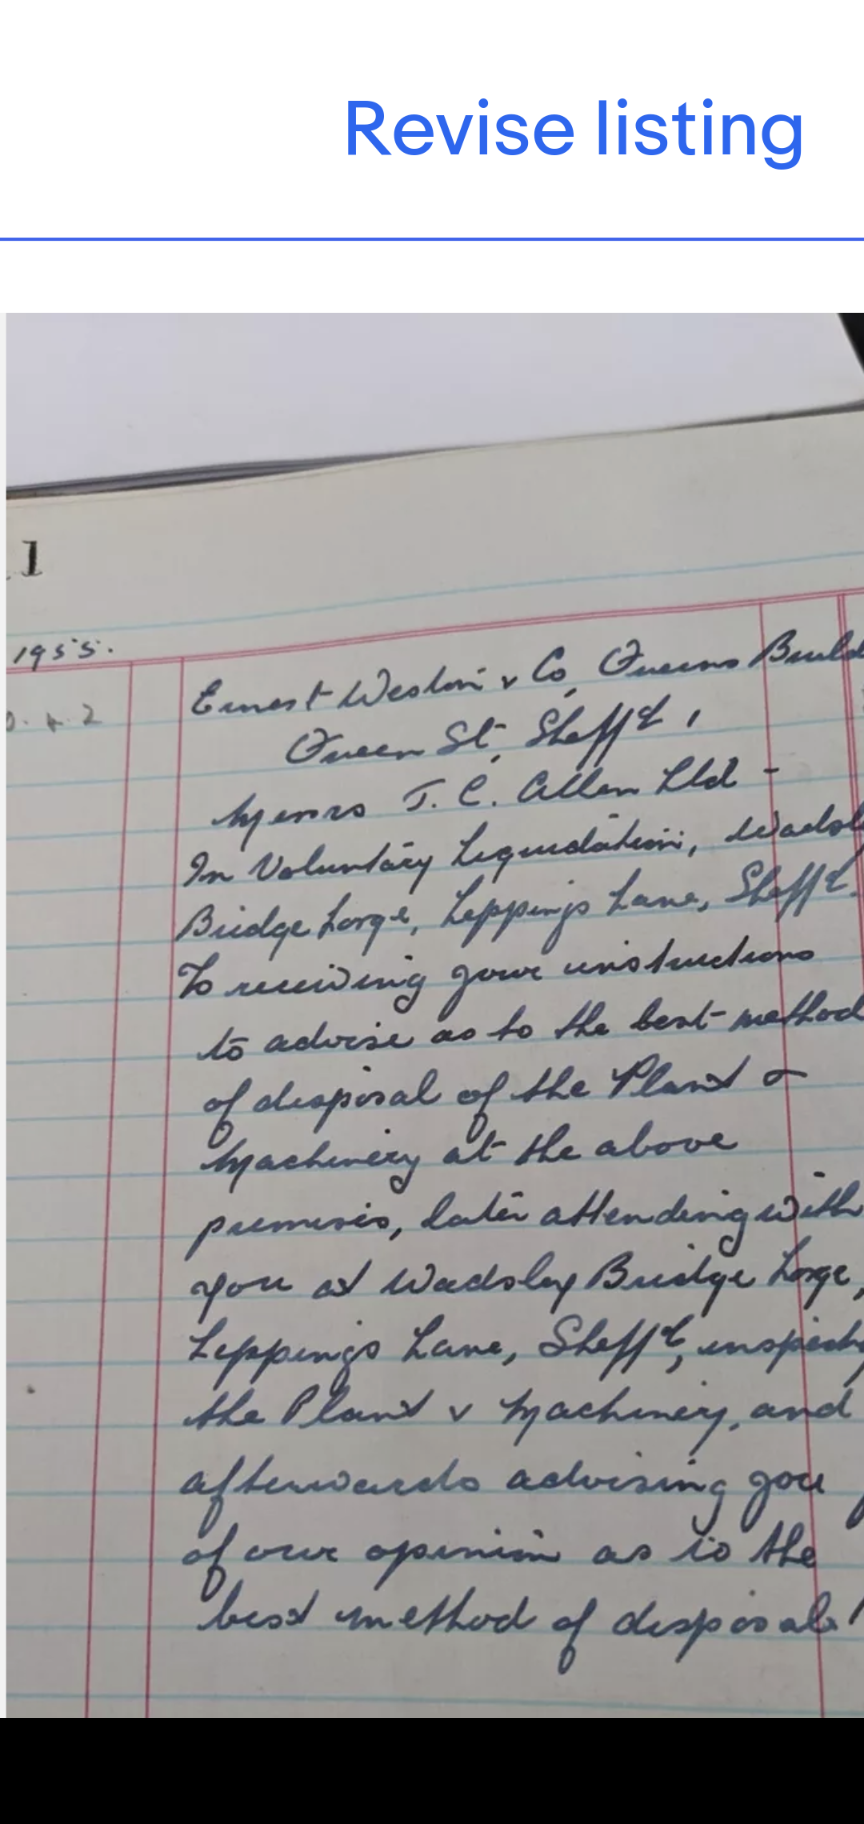 Revise listing
1
1955.
Ernest Weston & Co, Queens Build
Queen St, Sheff'd, 1
Messrs T. C. Allen Ltd -
In Voluntary Liquidation, Wadsl
Bridge Forge, Leppings Lane, Sheff'd.
To receiving your instructions
to advise as to the best method
of disposal of the Plant &
Machinery at the above
premises, later attending with
you at Wadsley Bridge Forge,
Leppings Lane, Sheff'd, inspectg
the Plant & Machinery, and
afterwards advising you
of our opinion as to the
best method of disposal.